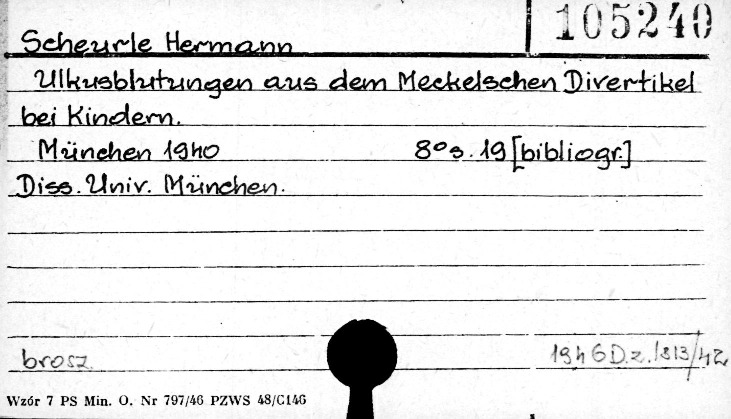 105240
Scheurle Hermann
Ulkusblutungen aus dem Meckelschen Divertikel
bei Kindern.
München 1940 8° s. 19 [bibliogr.]
Diss. Univ. München.
brosz. 1946 D.z. 1813/42
Wzór 7 PS Min. O. Nr 797/46 PZWS 48/C146